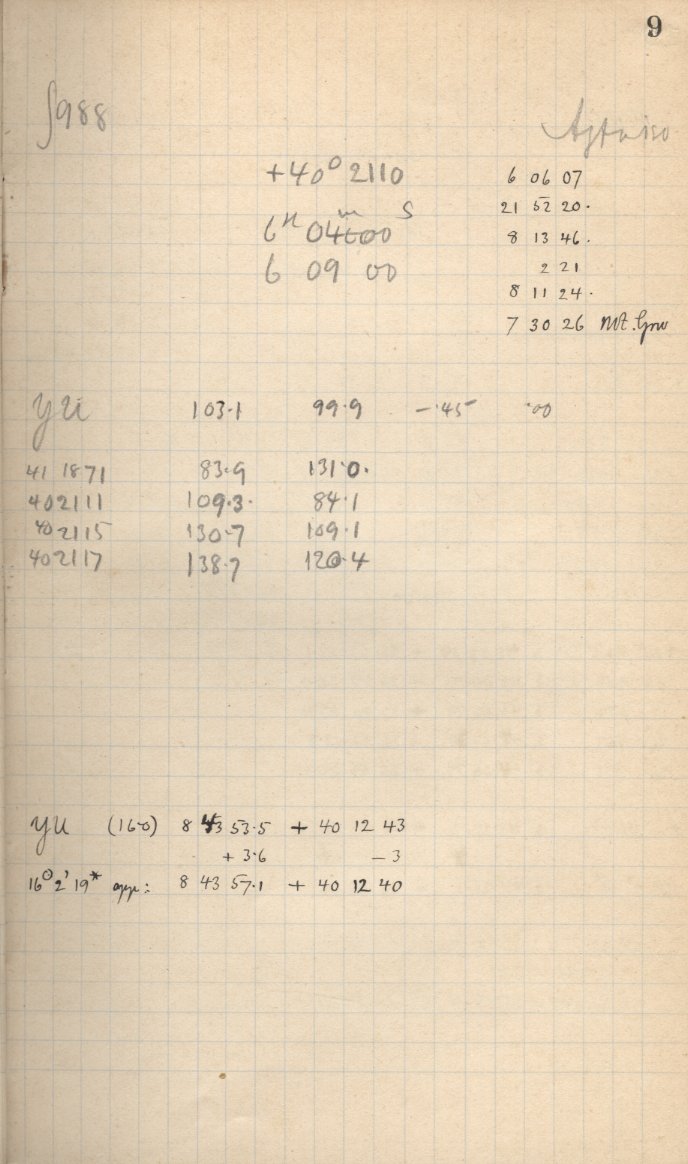 9
∫988
+40° 2110
6ʰ 04ᵐ 00 ˢ
6 09 00
6 06 07
21 52 20.
8 13 46.
2 21
8 11 24.
7 30 26
103.1 99.9 -.45 .00
41 1871 83.9 131.0.
40 2111 109.3. 84.1
40 2115 130.7 109.1
40 2117 138.7 120.4
(16.0) 8 43 53.5 + 40 12 43
+ 3.6 - 3
16° 2' 19* 8 43 57.1 + 40 12 40